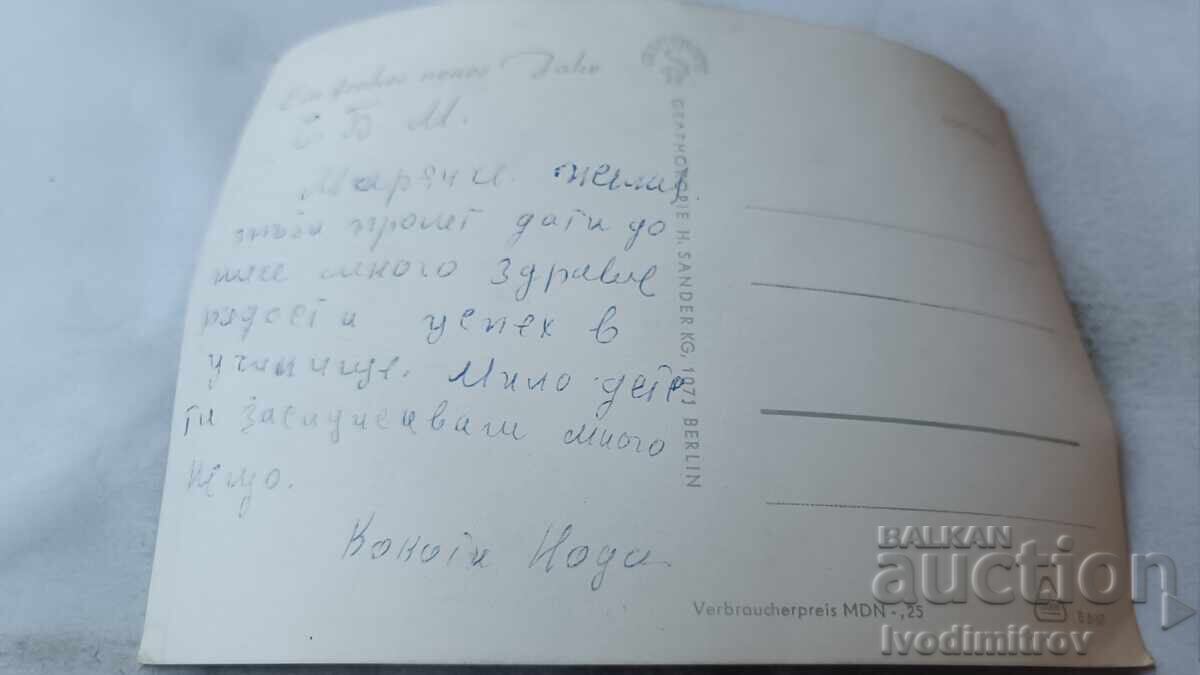 Ein frohes neues Jahr
С Б М.
Марячи. желая
пролет дати до
несе много здраве
радости успех в
училище. Мило дете
ти заслужаваш много
нещо.
Какати Нода
GRAPHOKOPIE H. SANDER KG, 1071 BERLIN
Verbraucherpreis MDN -,25
BALKAN
auction
Ivodimitrov